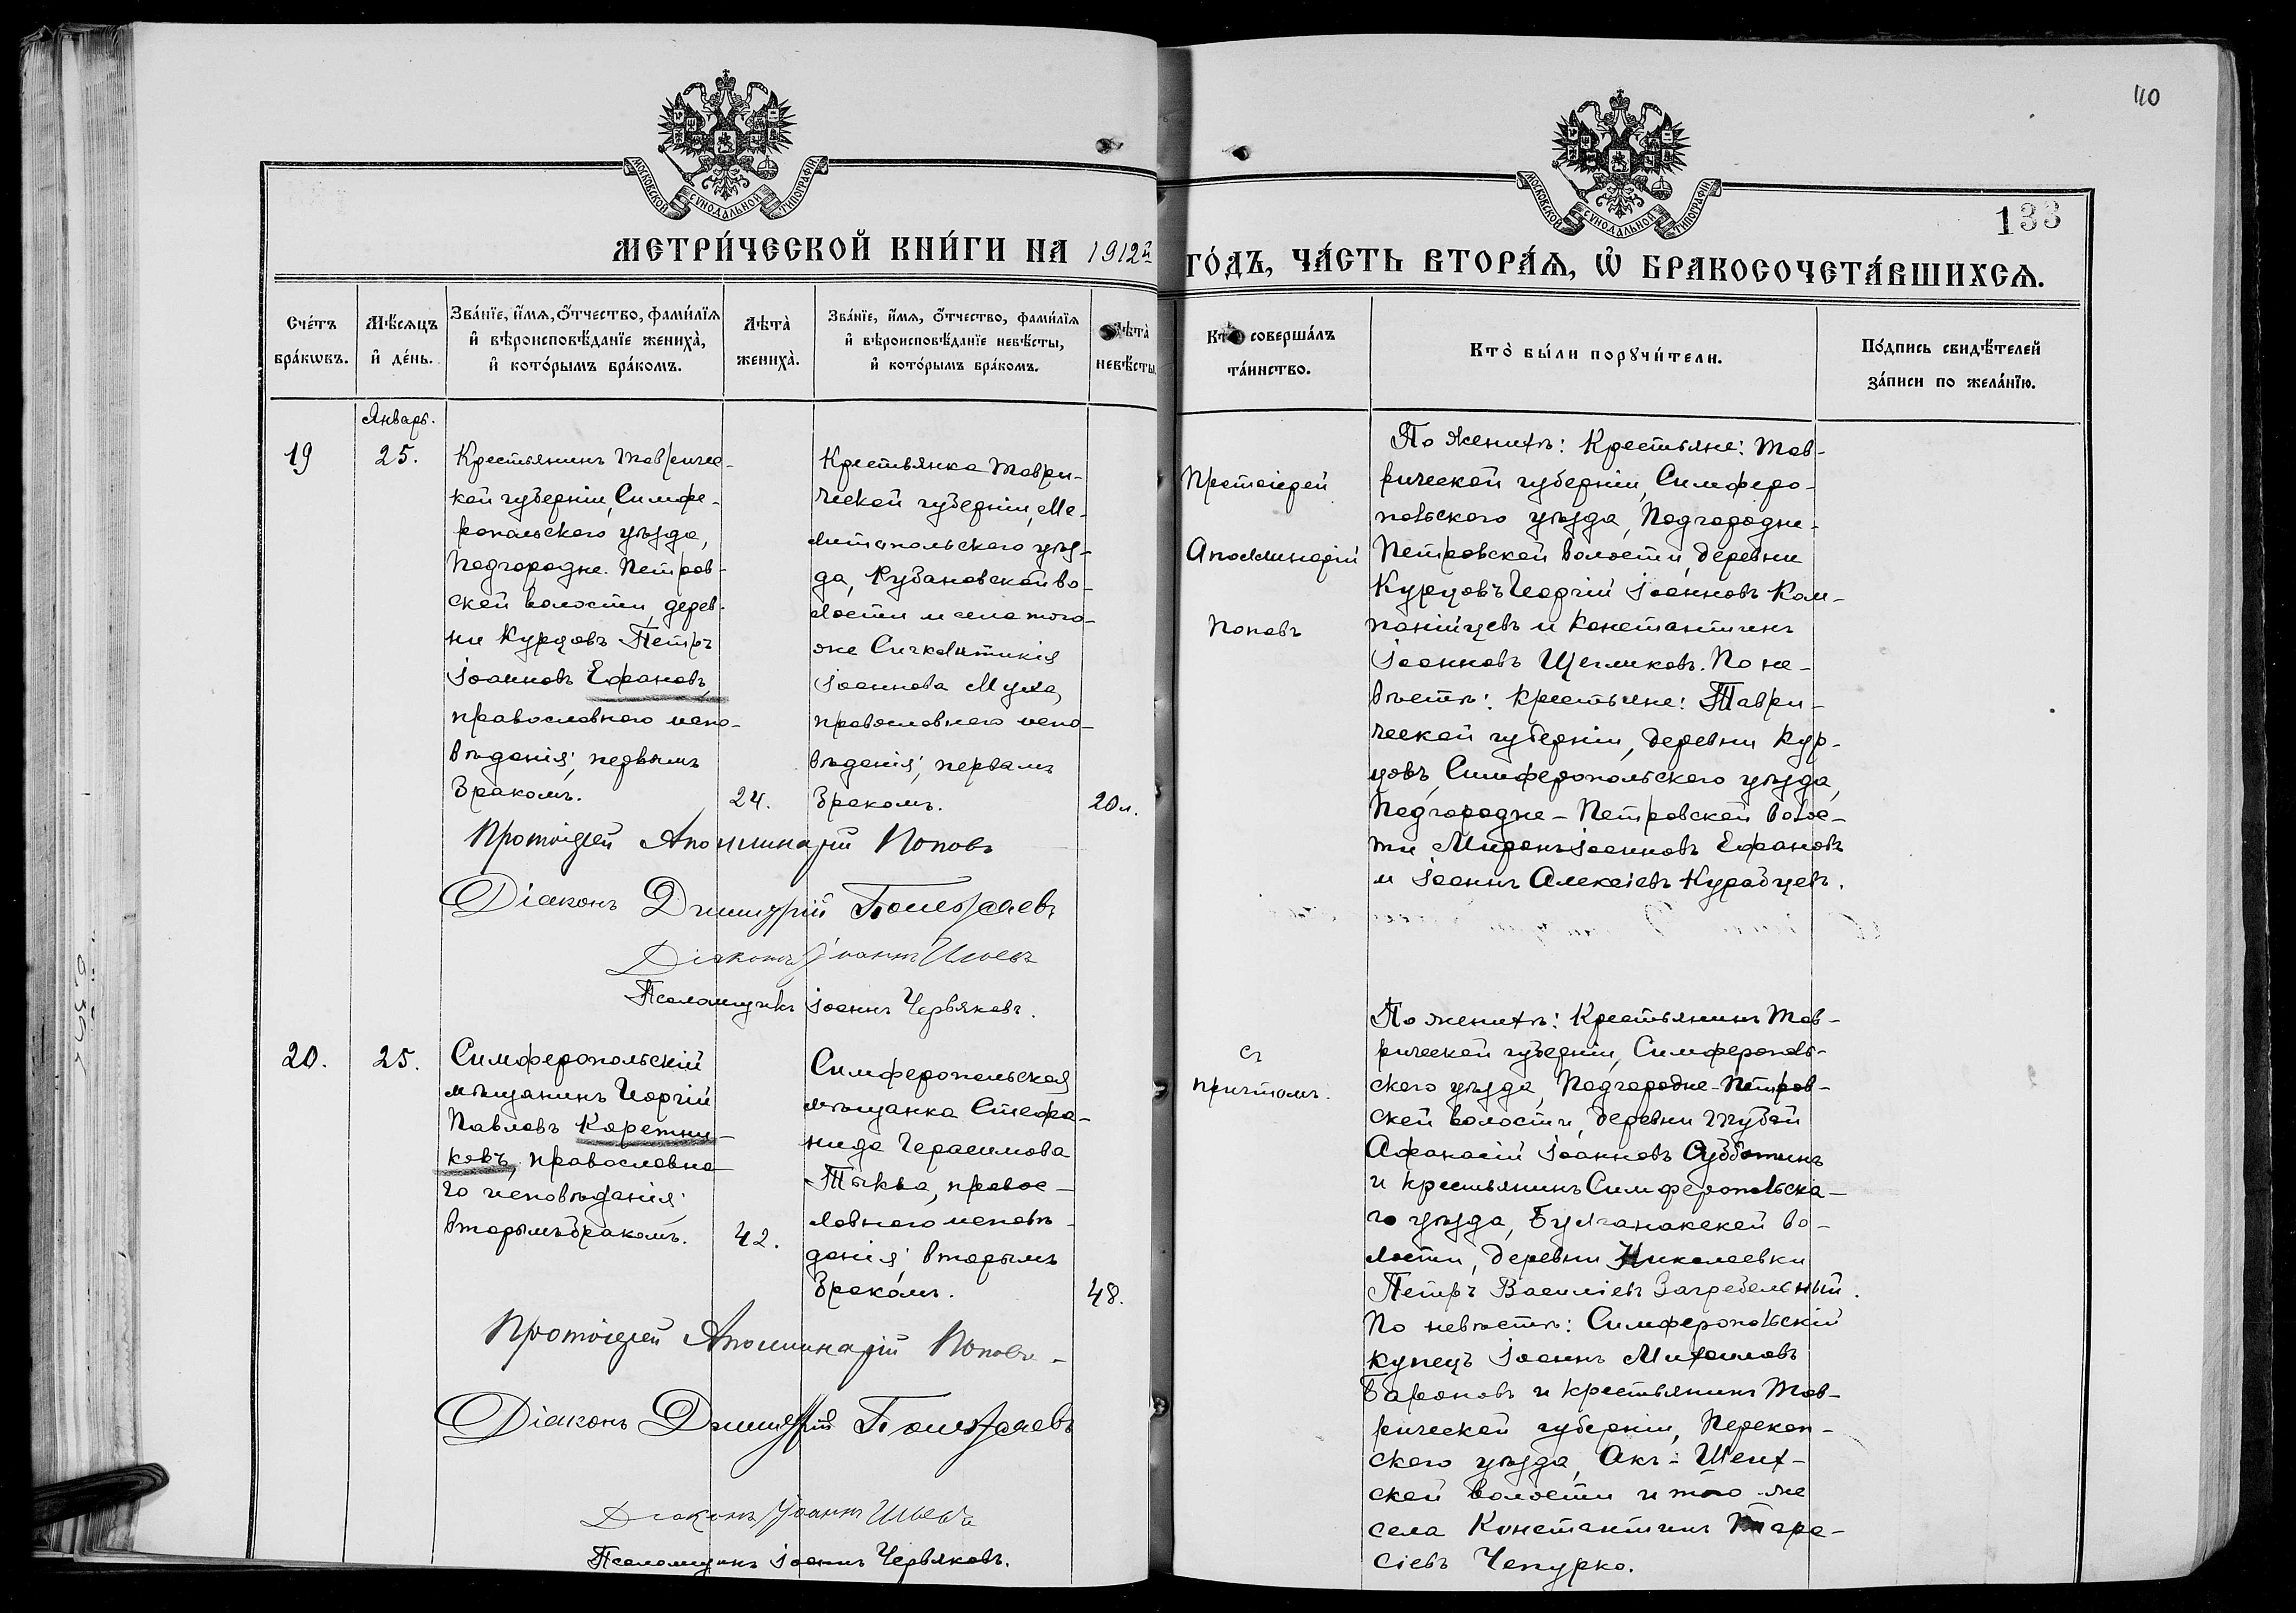 110
133
МОСКОВСКОЙ СѴНОДАЛЬНОЙ ТИПОГРАФІИ
МОСКОВСКОЙ СѴНОДАЛЬНОЙ ТИПОГРАФІИ
МЕТРИ́ЧЕСКОЙ КНИ́ГИ НА 1912й ГО́ДЪ, ЧА́СТЬ ВТОРА́Ѧ, Ѡ҆ БРАКОСОЧЕТА́ВШИХСѦ.
Сче́тъ бра́кѡвъ.
Мѣ́сѧцъ и҆ де́нь.
Зва́нїе, и҆́мѧ, ѻ҆́тчество, фами́лїѧ
и҆ вѣроисповѣ́данїе жениха̀,
и҆ кото́рымъ бра́комъ.
Лѣта̀ жениха̀.
Зва́нїе, и҆́мѧ, ѻ҆́тчество, фами́лїѧ
и҆ вѣроисповѣ́данїе невѣ́сты,
и҆ кото́рымъ бра́комъ.
Лѣта̀ невѣ́сты.
Кто̀ соверша́лъ та́инство.
Кто̀ бы́ли порꙋчи́тели.
По́дпись свидѣ́телей
за́писи по жела́нїю.
Январь.
19
25.
Крестьянинъ Тавричес-
кой губерніи, Симфе-
ропольскаго уѣзда,
Подгородне-Петров-
ской волости, дерев-
ни Курцовъ Петръ
Іоанновъ Ефановъ,
православнаго испо-
вѣданія; первымъ
бракомъ.
24.
Крестьянка Таври-
ческой губерніи, Ме-
литопольскаго уѣз-
да, Рубановской во-
лости и села того-
же Синклитикія
Іоаннова Муха,
православнаго испо-
вѣданія; первымъ
бракомъ.
20 л.
Протоіерей
Аполлинарій
Поповъ
По женихѣ: Крестьяне: Тав-
рической губерніи, Симферо-
польскаго уѣзда, Подгородне-
Петровской волости, деревни
Курцовъ Георгій Іоанновъ Ком-
панійцевъ и Константинъ
Іоанновъ Щегликовъ. По не-
вѣстѣ: крестьяне: Таври-
ческой губерніи, деревни Кур-
цовъ, Симферопольскаго уѣзда,
Подгородне-Петровской волос-
ти Миронъ Іоанновъ Ефановъ
и Іоаннъ Алексіевъ Курабцевъ.
Протоіерей Аполлинарій Поповъ
Діаконъ Димитрій
Діаконъ Іоаннъ Ильевъ
Псаломщикъ Іоаннъ Червяковъ.
20.
25.
Симферопольскій
мѣщанинъ Георгій
Павловъ Каретни-
ковъ, православна-
го исповѣданія;
вторымъ бракомъ.
42.
Симферопольская
мѣщанка Стефа-
нида Герасимова
Тыква, правос-
лавнаго исповѣ-
данія; вторымъ
бракомъ.
48.
Съ
причтомъ.
По женихѣ: Крестьянинъ Тав-
рической губерніи, Симферополь-
скаго уѣзда, Подгородне-Петров-
ской волости, деревни Тубай
Афанасій Іоанновъ Субботинъ
и крестьянинъ Симферопольска-
го уѣзда, Булганакской во-
лости, деревни Николаевки
Петръ Василіевъ Загребельный.
По невѣстѣ: Симферопольскій
купецъ Іоаннъ Михаиловъ
Бароновъ и крестьянинъ Тав-
рической губерніи, Перекоп-
скаго уѣзда, Акъ-Шеих-
ской волости и того-же
села Константинъ Тара-
сіевъ Чепурко.
Протоіерей Аполлинарій Поповъ
Діаконъ Димитрій
Діаконъ Іоаннъ Ильевъ
Псаломщикъ Іоаннъ Червяковъ.